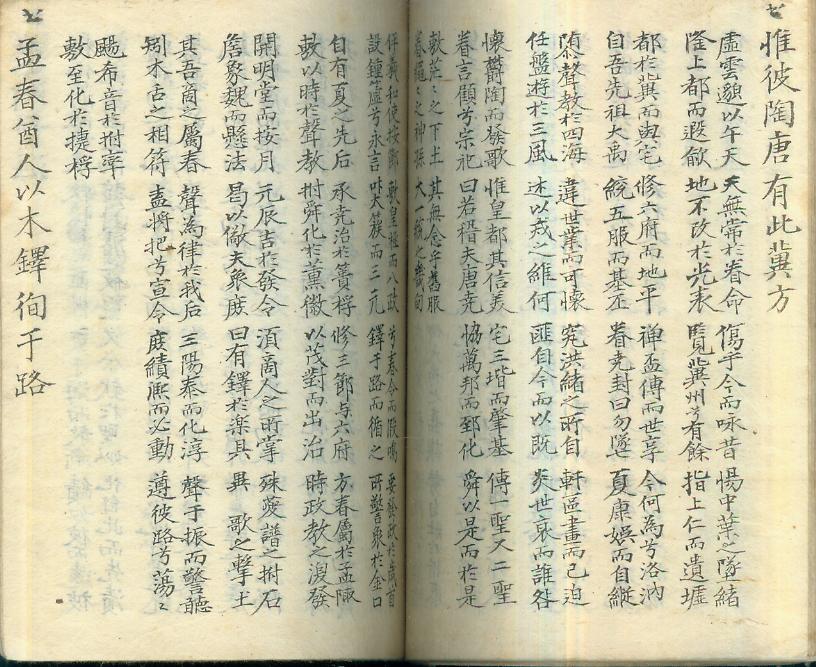 惟彼陶唐有此冀方
虛雲邈以午天 天無常於眷命 傷乎今而咏昔 惕中葉之墜緖
隆上都而遐 地不改於光表 覽冀州兮有餘 指上仁而遺墟
都於冀而奥宅 修六府而地平 禪盃傳而世享 今何爲兮洛汭
自吾先祖大禹 統五服而基丕 眷堯封曰勿墜 夏康娛而自縱
聲敎於四海 違世業而可懷 究洪緖之所自 軒區畫而已迫
任盤遊於三風 述以戒之維何 匪自今而以旣 炎世衰而誰咎
懷欝陶而發歌 惟皇都其信美 宅三堦而肇基 傳一聖又二聖
眷言顧兮宗祀 曰若稽夫唐堯 協萬邦而郅化 舜以是而於是
茫〻之下土 其無念乎舊服
眷繩〻之神孫 大一統之畿甸
倂羲和使按節 歌皇極而八政 兮春令而假鳴 要發政於歲首
設鍾簴兮永言 叶大簇而三元 鐸于路而循之 所警象於金口
自有夏之先后 承堯治於簣桴 修三節与六府 方春屬於孟陬
裁以時於聲敎 拊舜化於薰徽 以茂對而出治 時政敎之浚發
開明堂而按月 元辰吉於發令 須商人之所掌 殊夔譜之拊石
詹象魏而懸法 曷以儆夫衆庶 曰有鐸於樂具 異 歌之擊土
其吾商之屬春 聲爲律於我后 三陽泰而化淳 聲于振而警聽
矧木舌之相符 盍將把兮宣令 庶績凞而必動 遵彼路兮蕩〻
颺希音於拊率
敷至化於捷桴
孟春酋人以木鐸徇于路